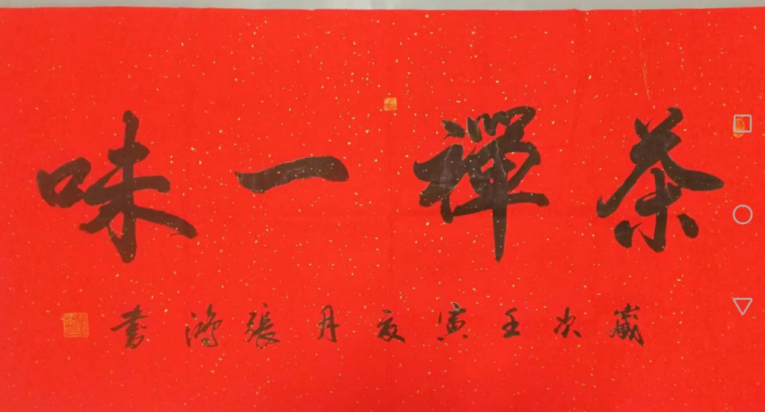 茶禪一味
歲次壬寅亥月張鴻書